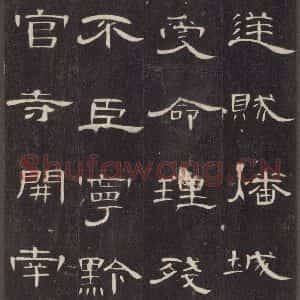 逆賊燔城
受命理殘
不臣寧黔
官寺開南
Shufawang.CN